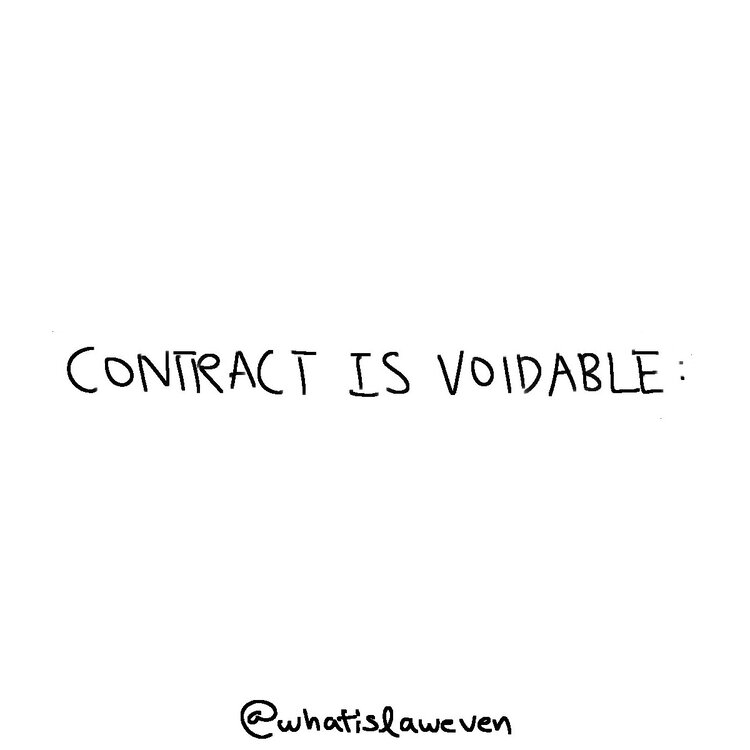 CONTRACT IS VOIDABLE:
@whatislaweven